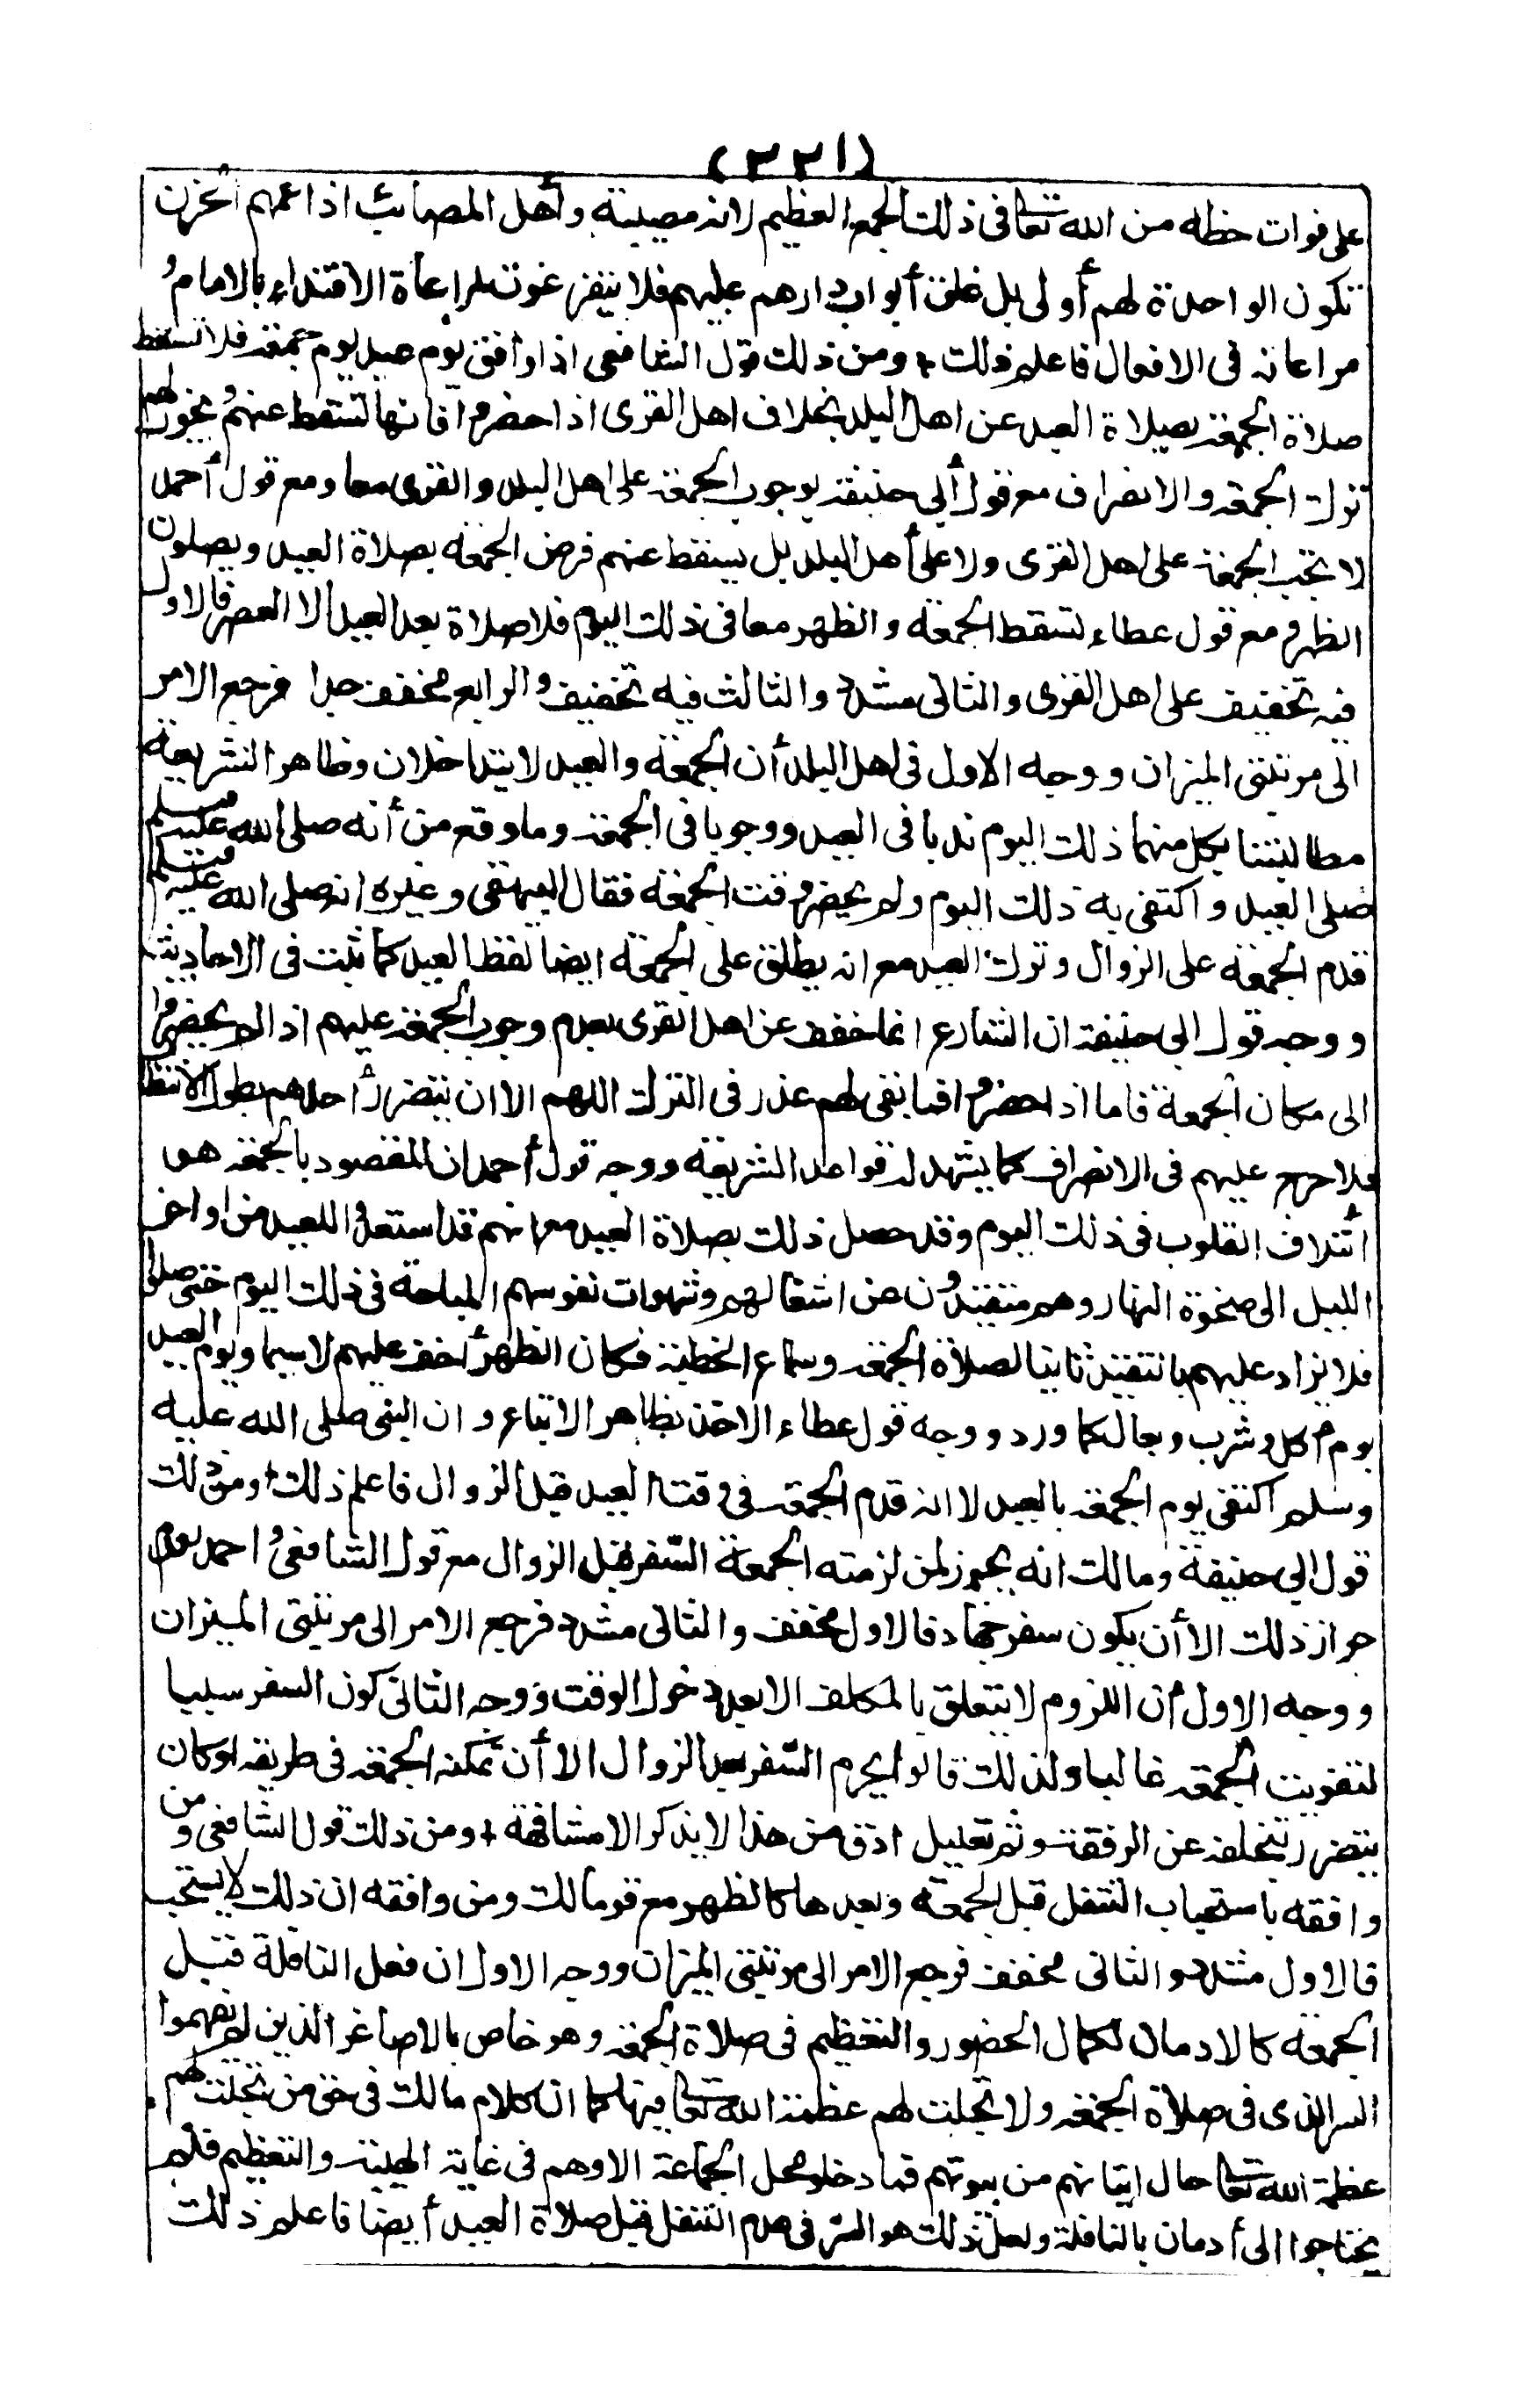 (٢٢١)
على فوات حظه من الله تعالى في ذلك الجمع العظيم لانه مصيبة وأهل المصائب اذا عمهم الحزن
تكون الواحدة لهم أولى بل غلق أبواب دارهم عليهم فلا يتفرغون لمراعاة الاقتداء بالامام و
مراعاته في الافعال فاعلم ذلك + ومن ذلك قول الشافعي اذا وافق يوم عيد يوم جمعة فلا تسقط
صلاة الجمعة بصلاة العيد عن اهل البلد بخلاف اهل القرى اذا حضروا فانها تسقط عنهم و يجوز لهم
ترك الجمعة والانصراف مع قول أبي حنيفة بوجوب الجمعة على اهل البلد والقرى معا ومع قول أحمد
لا تجب الجمعة على اهل القرى ولا على أهل البلد بل يسقط عنهم فرض الجمعة بصلاة العيد ويصلون
الظهر ومع قول عطاء تسقط الجمعة والظهر معا في ذلك اليوم فلا صلاة بعد العيد ألا العصر فالاول
فيه تخفيف على اهل القرى والثاني مشدد والثالث فيه تخفيف والرابع مخفف جدا فرجع الامر
الى مرتبتي الميزان ووجه الاول في اهل البلد أن الجمعة والعيد لا يتداخلان وظاهر الشريعة
مطالبتنا بكل منهما ذلك اليوم ندبا في العيد ووجوبا في الجمعة وما وقع من أنه صلى الله عليه وسلم
صلى العيد واكتفى به ذلك اليوم ولم يحضر وقت الجمعة فقال البيهقي وغيره انه صلى الله عليه وسلم
قدم الجمعة على الزوال وترك العيد مع انه يطلق على الجمعة ايضا لفظ العيد كما ثبت في الاحاديث
ووجه قول ابي حنيفة ان الشارع انما خفف عن اهل القرى بعدم وجوب الجمعة عليهم اذا لم يحضروا
الى مكان الجمعة فاما اذا حضروا فما بقى لهم عذر في الترك اللهم الا ان يتضرر أحدهم بطول الانتظا
فلا حرج عليهم في الانصراف كما يشهد له قواعد الشريعة ووجه قول أحمد ان المقصود بالجمعة هو
ائتلاف القلوب في ذلك اليوم وقد حصل ذلك بصلاة العيد مع انهم قد استعدوا للعيد من اواخر
الليل الى ضحوة النهار وهم متقيدون عن اشغالهم وشهوات نفوسهم المباحة في ذلك اليوم حتى صلوا
فلا يزاد عليهم بالتقييد ثانيا لصلاة الجمعة وسماع الخطبة فكان الظهر أخف عليهم لا سيما ويوم العيد
يوم اكل وشرب وبعال كما ورد ووجه قول عطاء الاخذ بظاهر الاتباع وان النبي صلى الله عليه
وسلم اكتفى يوم الجمعة بالعيد لا انه قدم الجمعة في وقت العيد قبل الزوال فاعلم ذلك + ومن ذلك
قول ابي حنيفة ومالك انه يجوز لمن لزمته الجمعة السفر قبل الزوال مع قول الشافعي و احمد بعدم
جواز ذلك الا أن يكون سفر جهاد فالاول مخفف والثاني مشدد فرجع الامر الى مرتبتي الميزان
ووجه الاول أن اللزوم لا يتعلق بالمكلف الا بعد دخول الوقت ووجه الثاني كون السفر سببا
لتفويت الجمعة غالبا ولذلك قالوا يحرم السفر بعد الزوال الا أن تمكنه الجمعة في طريقه او كان
يتضرر بتخلفه عن الرفقة وثم تعليل ادق من هذا لا يذكر الا مشافهة + ومن ذلك قول الشافعي ومن
وافقه باستحباب التنفل قبل الجمعة وبعدها كالظهر مع قو مالك ومن وافقه ان ذلك لا يستحب
فالاول مشدد والثاني مخفف فرجع الامر الى مرتبتي الميزان ووجه الاول ان فعل النافلة قبل
الجمعة كالادمان لكمال الحضور والتعظيم في صلاة الجمعة وهو خاص بالاصاغر الذين لم يفهموا
السر الذي في صلاة الجمعة ولا تجلت لهم عظمة الله تعالى فيها كما ان كلام مالك في حق من تجلت لهم
عظمة الله تعالى حال اتيانهم من بيوتهم فما دخلوا محل الجماعة الا وهم في غاية الهيبة والتعظيم فلم
يحتاجوا الى أدمان بالنافلة ولعل ذلك هو السر في عدم التنفل قبل صلاة العيد أيضا فاعلم ذلك